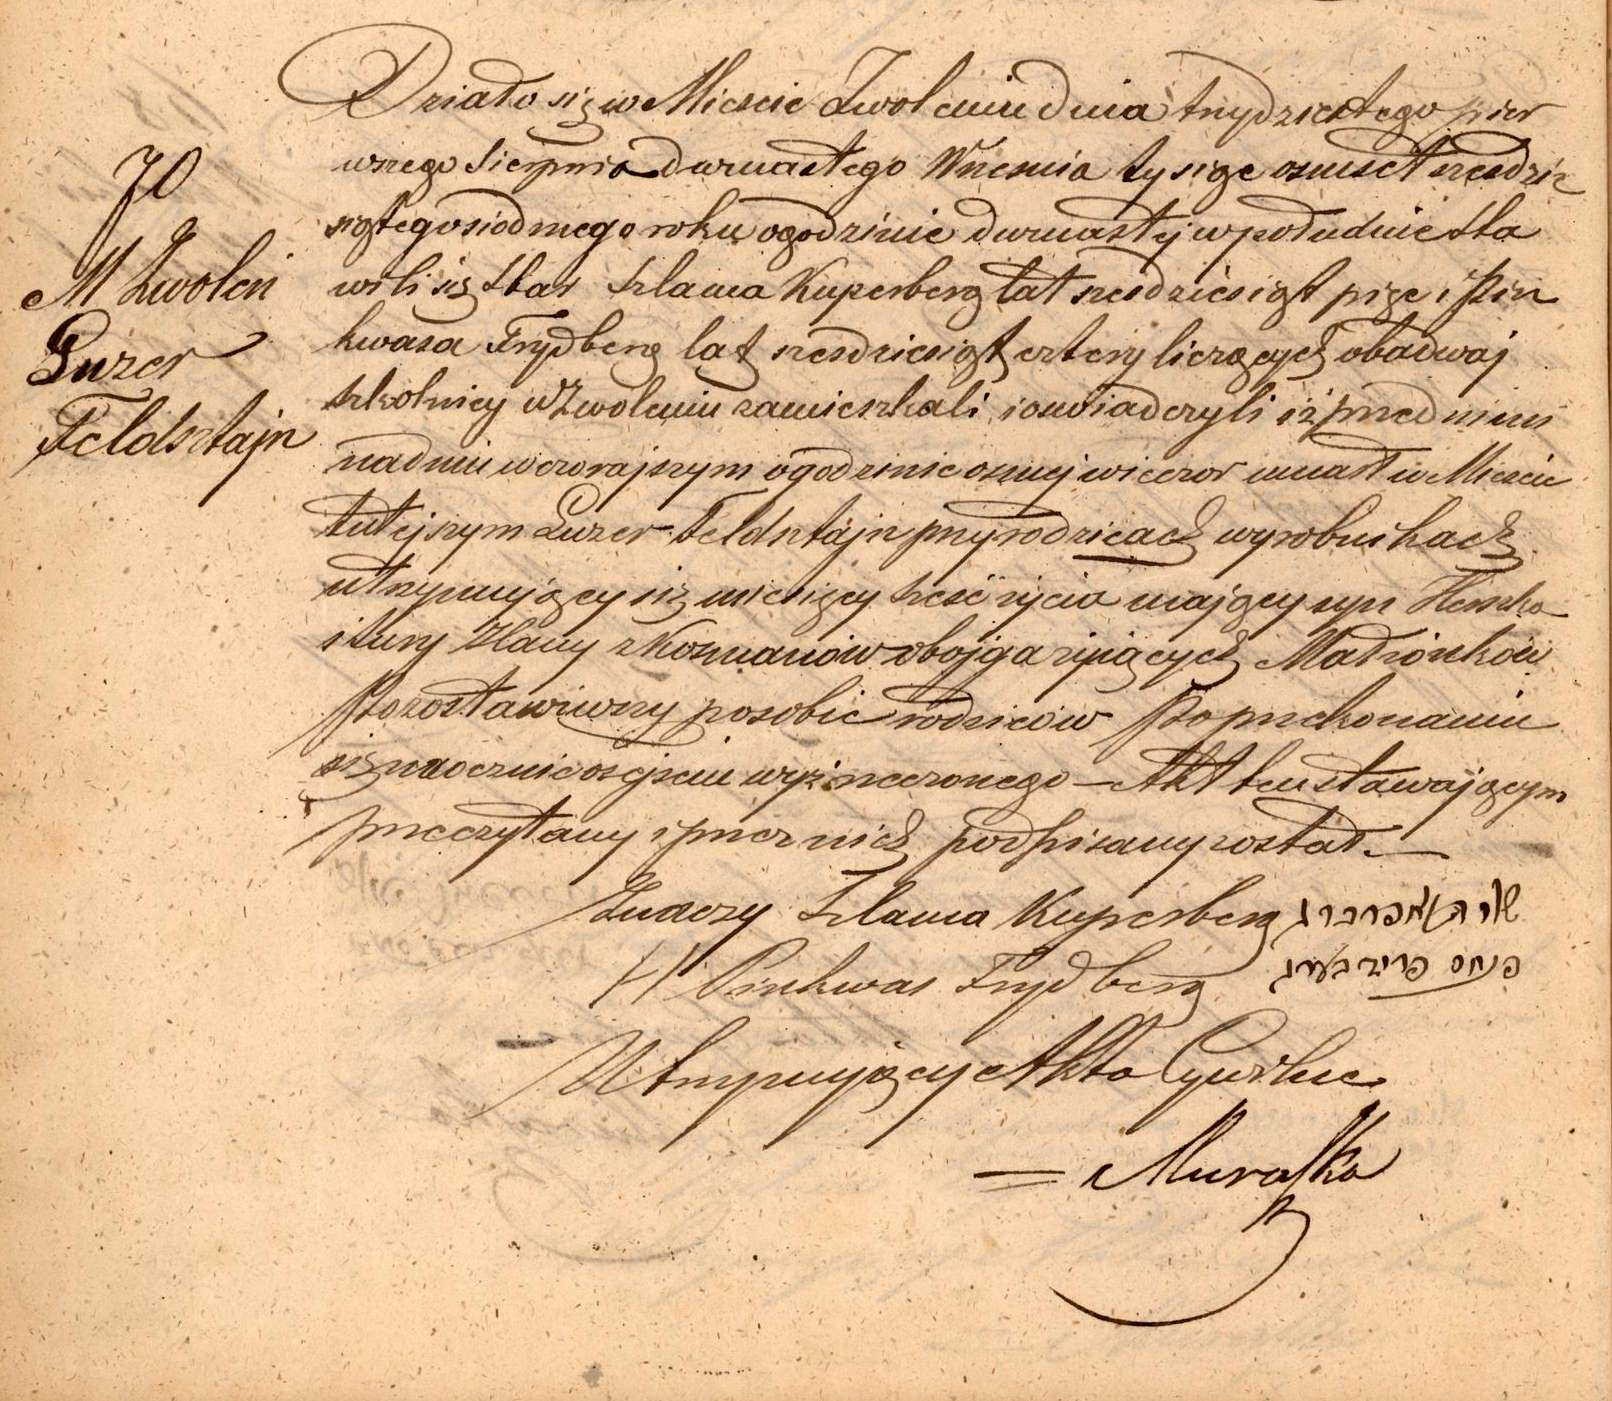 70
M Zwoleń
Luzer
Feldsztajn
Działo się w Mieście Zwoleniu dnia trzydziestego pier
wszego Sierpnia dwunastego Września tysiąc osmset szesdzie
siątego siodmego roku o godzinie dwunastej w południe sta
wili się Star Szlama Kuperberg lat szesdziesiąt pięc i Pin
kwasa Frydberg lat szesdziesiąt cztery liczących obadwaj
szkolnicy w Zwoleniu zamieszkali i oswiadczyli iż przed niem
na dniu wczorajszym o godzinie osmej wieczor umarł w Mieście
tutejszym Luzer Feldsztajn przy rodzicach wyrobnikach
utrzymujący się miesięcy sześć życia mający syn Herszka
i Sury Hany z Kosmanow obojga zyjących Małżonków
Pozostawiwszy po sobie rodziców Po przekonaniu
się naocznie o zejściu wyż mczonego — Akt ten stawającym
przeczytany i przez nich podpisany został. —
Znaczy Szlama Kuperberg
H Pinkwas Frydberg פנחס פרידבערג
Utrzymujący Akta Cywilne
= Muraſko